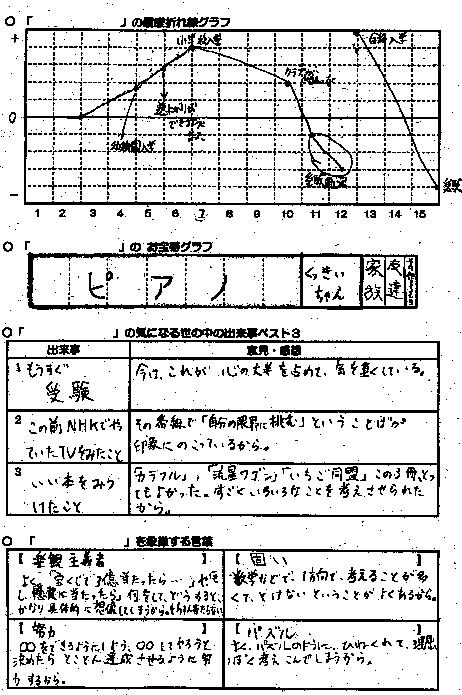 ○「　　　　　　　」の感情折れ線グラフ
+
小学校入学
合格入学
0
できる
幼稚園入学
受験
-
1 2 3 4 5 6 7 8 9 10 11 12 13 14 15
○「　　　　　　　」の お宝帯グラフ
ピアノ
くっきぃ
ちゃん
家族
友達
○「　　　　　　　」の気になる世の中の出来事ベスト3
出来事
意見・感想
1 もうすぐ
受験
今は、これが 心の大半を占めて、気を重くしている。
2 この前NHKでや
っていたTVをみたこと
その番組で「自分の限界に挑む」ということばが
印象にのこっているから。
3 いい本をみつ
けたこと
「カラフル」,「流星ワゴン」「いちご同盟」この3冊、とっ
てもよかった。すごくいろいろなことを考えさせられた
から。
○「　　　　　　　」を象徴する言葉
【 楽観主義者 】
よく、「宝くじで3億当たったら…」や「も
し、懸賞に当たったら」何をして、どうするか、
かなり具体的に想像してしまうから。
【 固い 】
数学などで、1方向で、考えることが多
くて、とけないということが よくあるから。
【 努力 】
○○をできるようにしよう、○○してやろうと
決めたら とことん達成させるように努
力するから。
【 パズル 】
よく、パズルのように、ひねくれて、理屈
っぽく考えこんでしまうから。